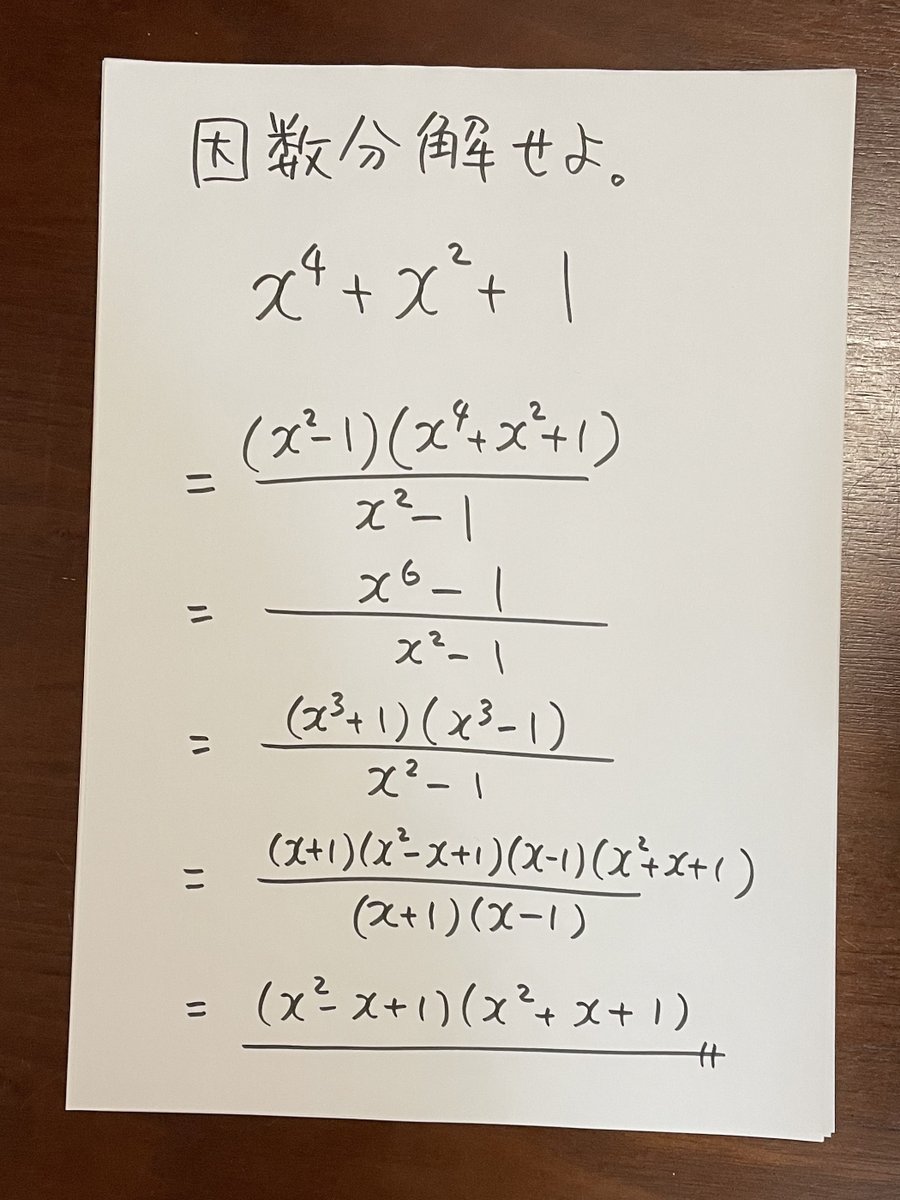 因数分解せよ。
x⁴ + x² + 1
= (x²-1)(x⁴+x²+1)
x²-1
= x⁶-1
x²-1
= (x³+1)(x³-1)
x²-1
= (x+1)(x²-x+1)(x-1)(x²+x+1)
(x+1)(x-1)
= (x²-x+1)(x²+x+1)